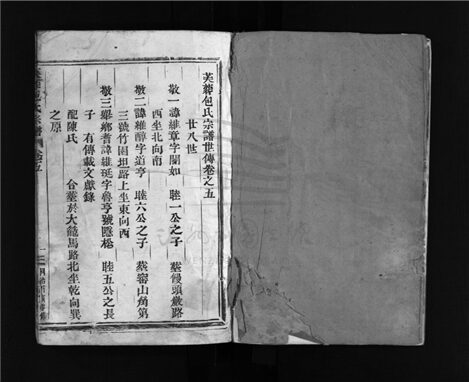 芙蓉包氏宗譜世傳卷之五
廿八世
敬一諱維章字闇如　睦一公之子　墓饅頭嚴路
西坐北向南
敬二諱維醇字道亭　睦六公之子　墓審山角第
三號竹園坦路上坐東向西
敬三舉鄉耆諱維珽字魯亭號　睦五公之長
子　有傳載文獻錄
配陳氏　合墓於大龍馬路北坐乾向巽
之原